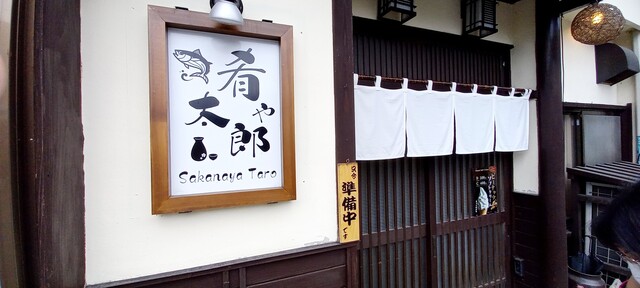 肴や
太郎
Sakanaya Taro
只今
準備中
です